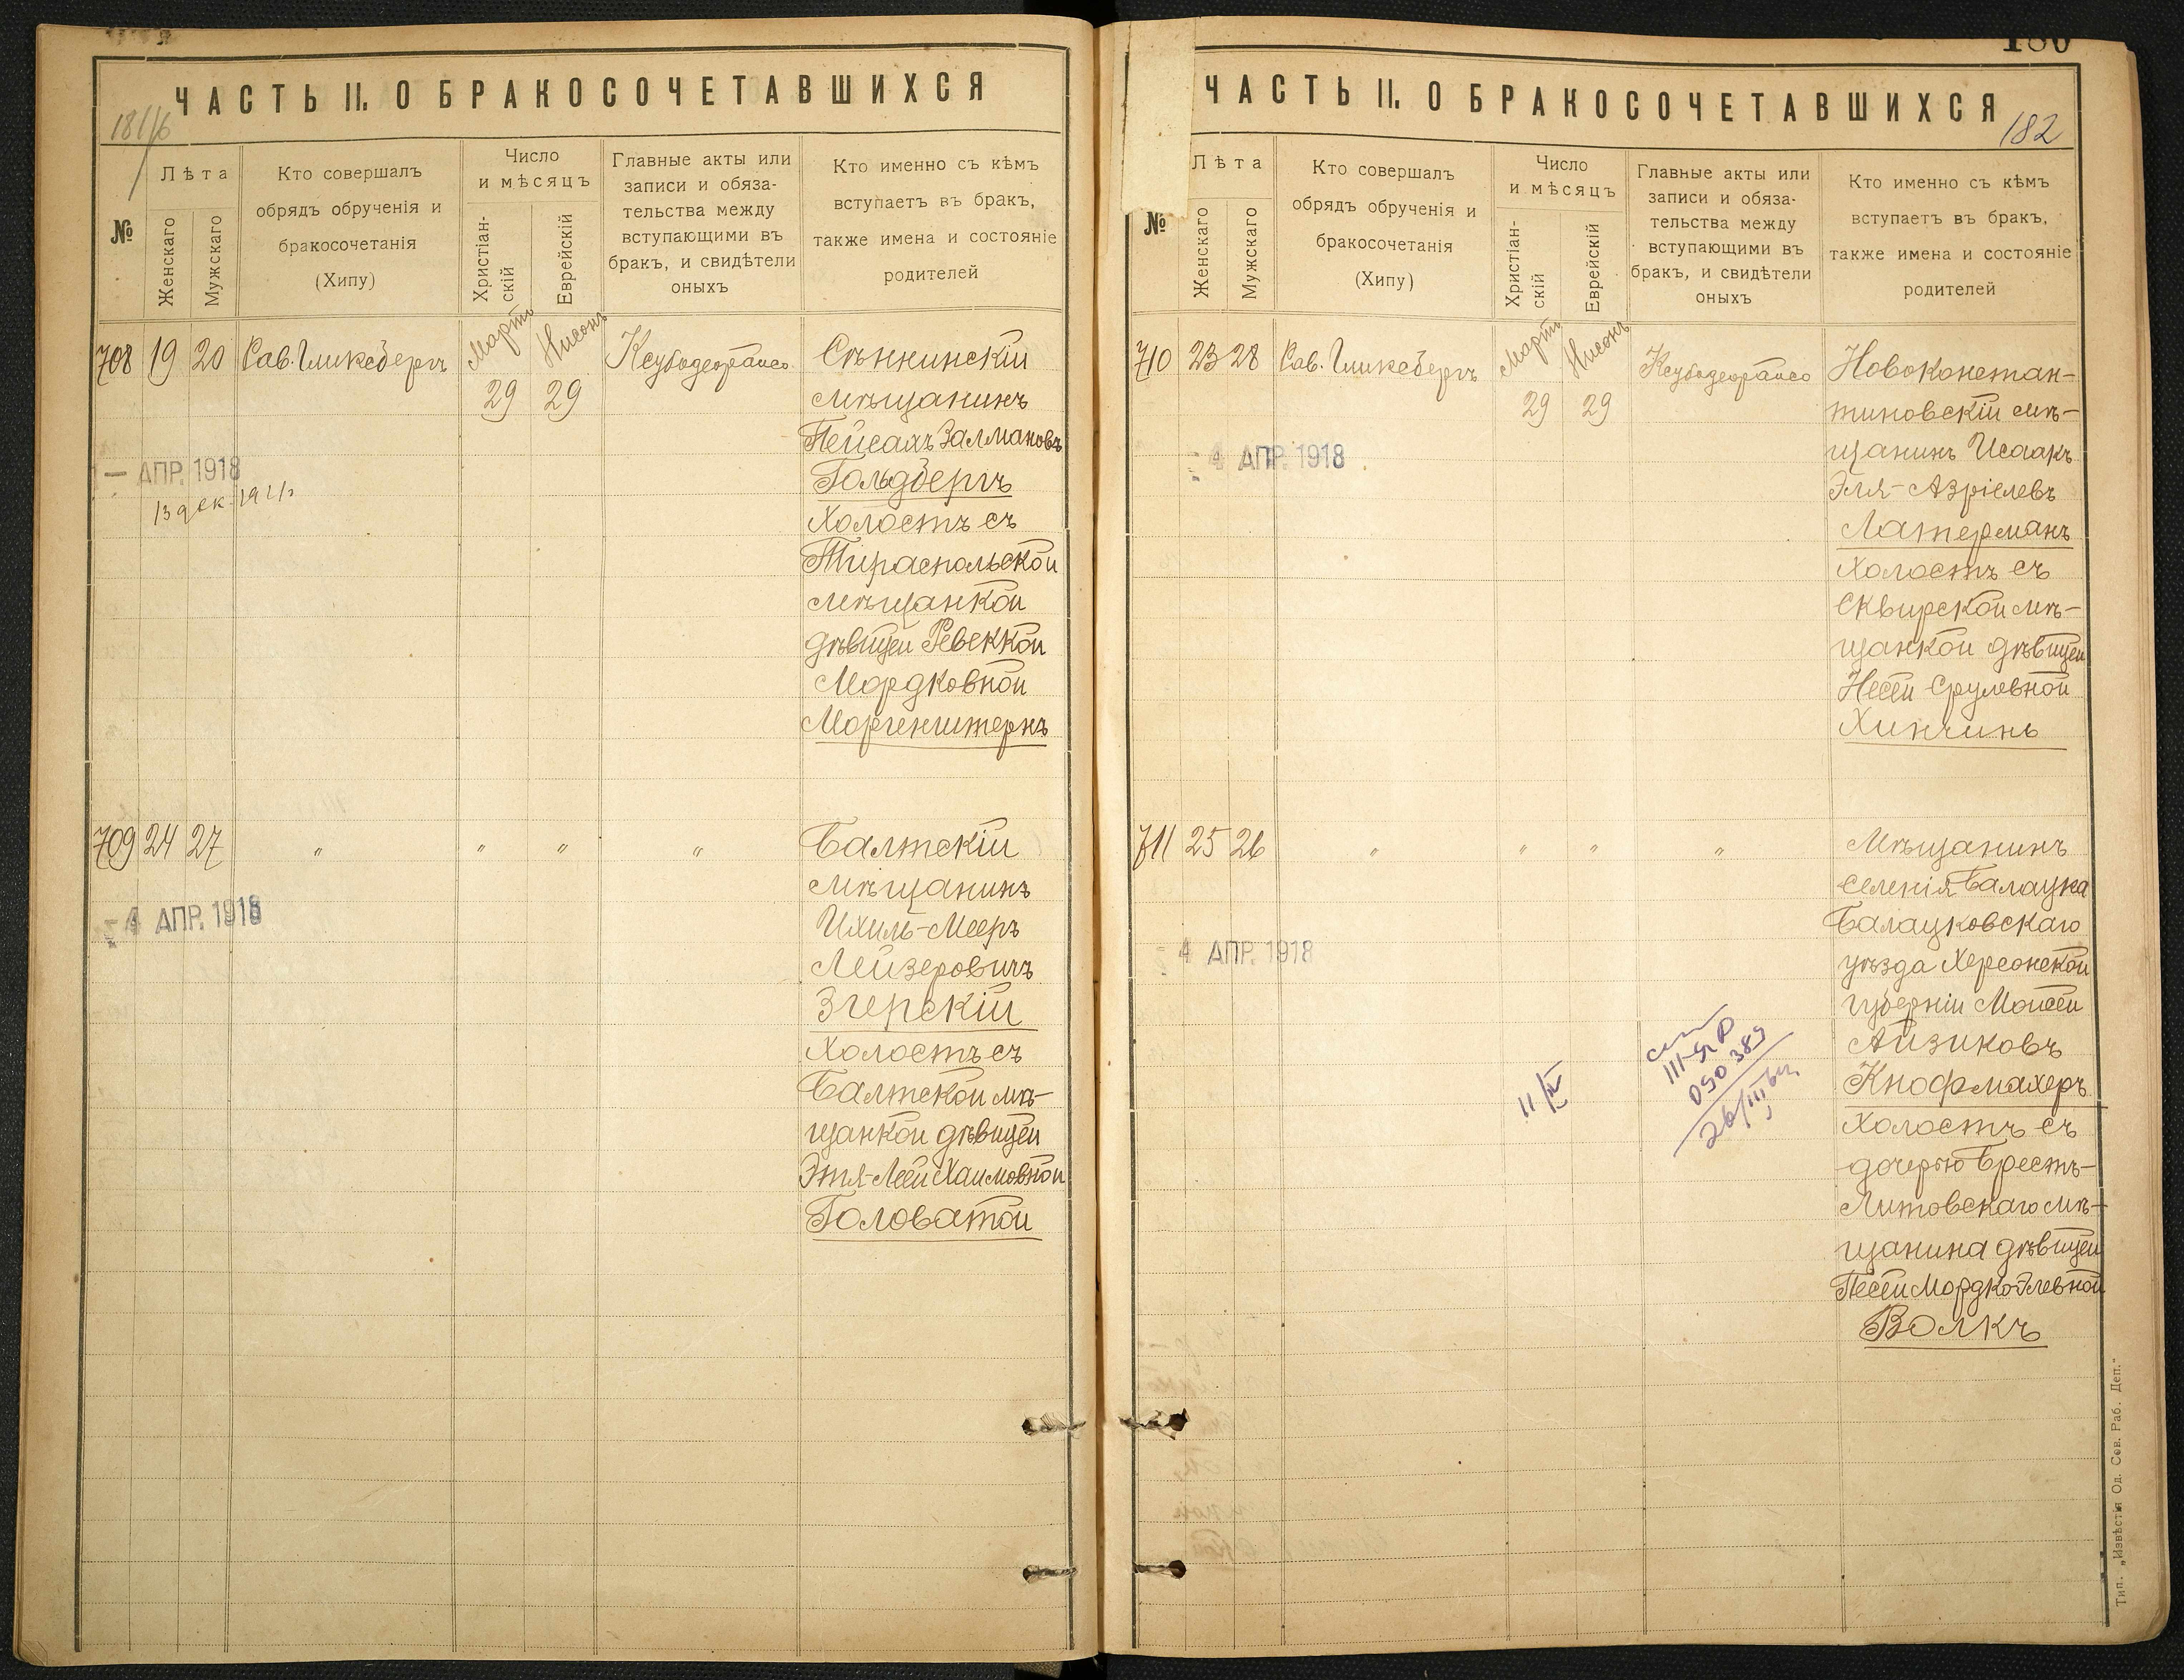 ЧАСТЬ II. О БРАКОСОЧЕТАВШИХСЯ
№
Лѣта
Женскаго
Мужскаго
Кто совершалъ
обрядъ обрученія и
бракосочетанія
(Хипу)
Число
и мѣсяцъ
Христіан-
скій
Еврейскій
Главные акты или
записи и обяза-
тельства между
вступающими въ
бракъ, и свидѣтели
оныхъ
Кто именно съ кѣмъ
вступаетъ въ бракъ,
также имена и состояніе
родителей
708 19 20 Сав. Гликсбергъ
Мартъ
29
Нисонъ
29
Сѣннинскій
мѣщанинъ
Пейсахъ Залмановъ
Гольдбергъ
Холостъ съ
Тираспольской
мѣщанкой
дѣвицей Ревеккой
Мордковной
Моргенштернъ
— АПР. 1918
13 дек. 1921
709 24 27 " " " "
Балтскій
мѣщанинъ
Ихиль-Мееръ
Лейзеровичъ
Згерскій
Холостъ съ
Балтской мѣ-
щанкой дѣвицей
Этя-Леей Хаимовной
Головатой
4 АПР. 1918
180
ЧАСТЬ II. О БРАКОСОЧЕТАВШИХСЯ
182
№
Лѣта
Женскаго
Мужскаго
Кто совершалъ
обрядъ обрученія и
бракосочетанія
(Хипу)
Число
и мѣсяцъ
Христіан-
скій
Еврейскій
Главные акты или
записи и обяза-
тельства между
вступающими въ
бракъ, и свидѣтели
оныхъ
Кто именно съ кѣмъ
вступаетъ въ бракъ,
также имена и состояніе
родителей
710 23 28 Сав. Гликсбергъ
Мартъ
29
Нисонъ
29
Новоконстан-
тиновскій мѣ-
щанинъ Исаакъ
Эля-Азріелевъ
Латерманъ
Холостъ съ
Сквирской мѣ-
щанкой дѣвицей
Несей Срулевной
Хинчинъ
4 АПР. 1918
711 25 26 " " " "
Мѣщанинъ
селенія Балацка
Балацковскаго
уѣзда Херсонской
губерніи Моисей
Айзиковъ
Кнофмахеръ
Холостъ съ
дочерью Брестъ-
Литовскаго мѣ-
щанина дѣвицей
Песей Мордко-Элевной
Волкъ
4 АПР. 1918
11/IV
050389
Тип. „Извѣстія Од. Сов. Раб. Деп."